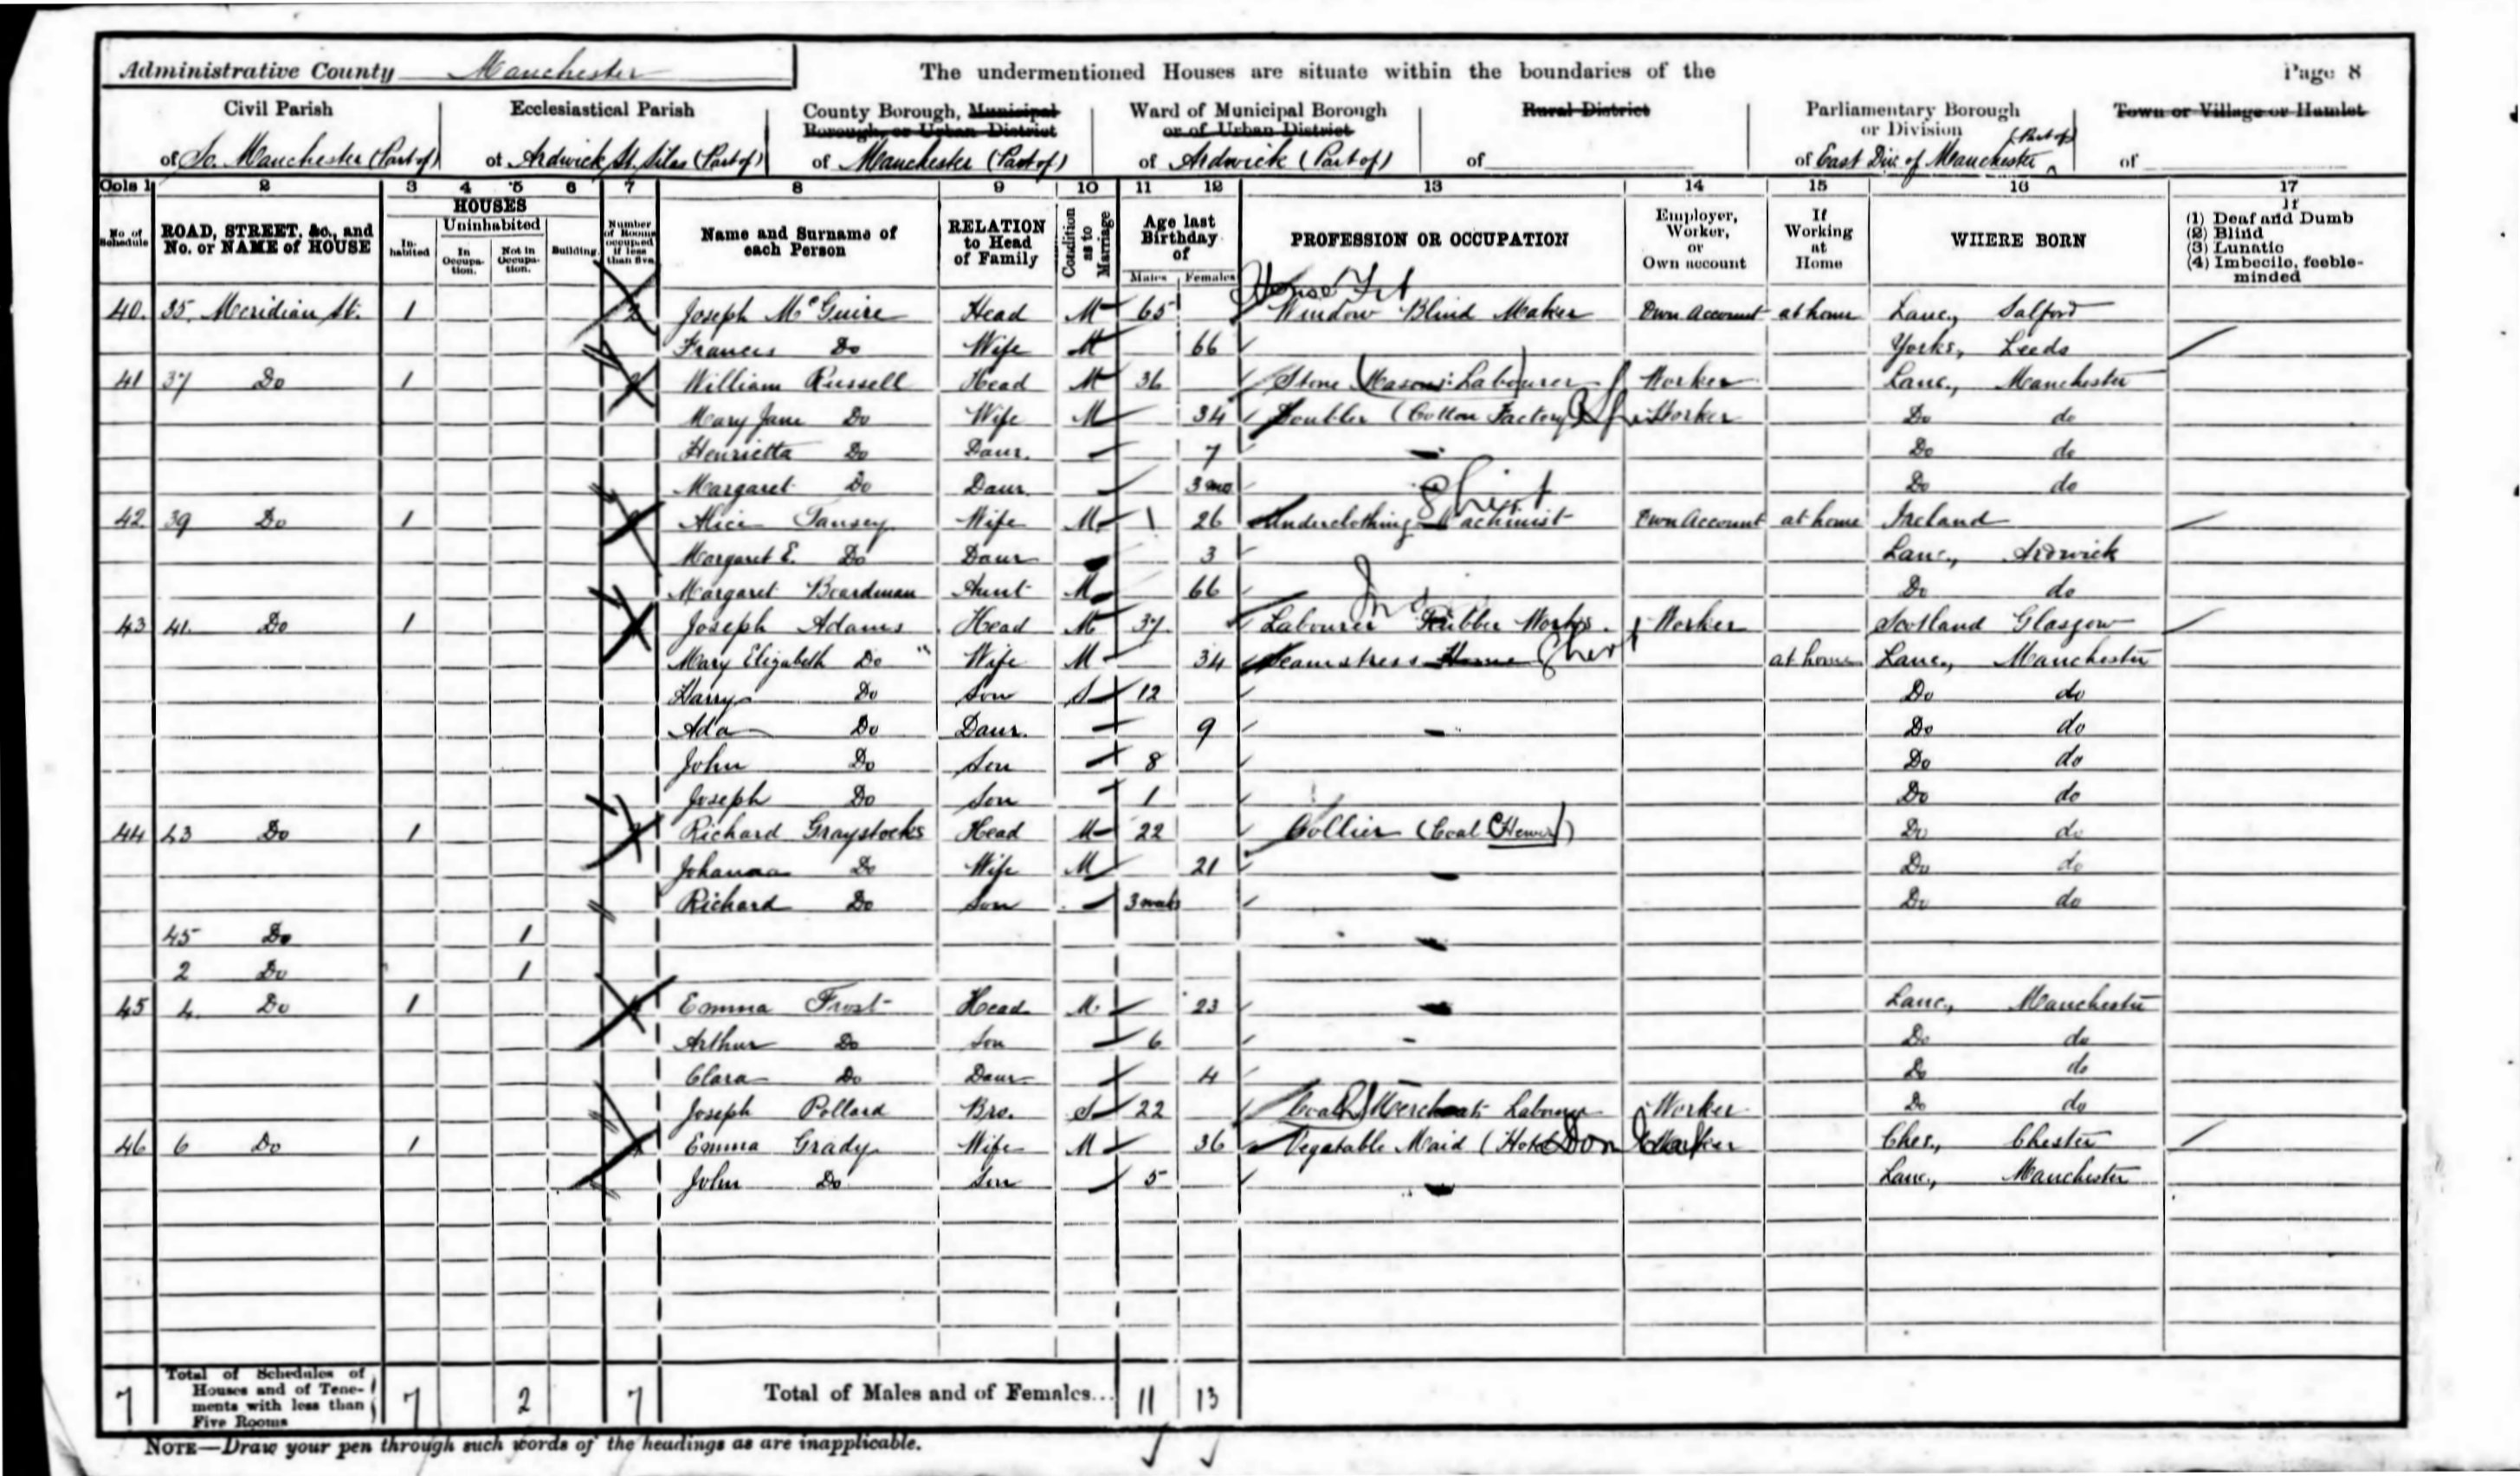 Administrative County Manchester
The undermentioned Houses are situate within the boundaries of the
Page 8
Civil Parish
of So. Manchester (Part of)
Ecclesiastical Parish
of Ardwick St. Silas (Part of)
County Borough, Municipal
Borough, or Urban District
of Manchester (Part of)
Ward of Municipal Borough
or of Urban District
of Ardwick (Part of)
Rural District
of
Parliamentary Borough
or Division
of East Div. of Manchester (Part of)
Town or Village or Hamlet
of
Cols 1 2 3 4 5 6 7 8 9 10 11 12 13 14 15 16 17
No. of Schedule
ROAD, STREET, &c., and No. or NAME of HOUSE
HOUSES
Inhabited
Uninhabited
In Occupation.
Not in Occupation.
Building.
Number of Rooms occupied if less than five
Name and Surname of each Person
RELATION to Head of Family
Condition as to Marriage
Age last Birthday of
Males Females
PROFESSION OR OCCUPATION
Employer, Worker, or Own account
If Working at Home
WHERE BORN
If
(1) Deaf and Dumb
(2) Blind
(3) Lunatic
(4) Imbecile, feeble-minded
40. 35. Meridian St. 1 2 Joseph McGuire Head M 65 Window Blind Maker Own Account at home Lanc., Salford
Frances Do Wife M 66 Yorks, Leeds
41 37 Do 1 William Russell Head M 36 Stone Masons Labourer Worker Lanc., Manchester
Mary Jane Do Wife M 34 Doubler (Cotton Factory) Worker Do do
Henrietta Do Daur. 7 Do do
Margaret Do Daur. 3 mo Do do
Shirt
42 39 Do 1 Alice Tansey Wife M 26 Underclothing Machinist Own Account at home Ireland
Margaret E. Do Daur 3 Lanc., Ardwick
Margaret Boardman Aunt M 66 Do do
43 41. Do 1 Joseph Adams Head M 37. Labourer Rubber Works. Worker Scotland Glasgow
Mary Elizabeth Do Wife M 34 Seamstress Home Shirt at home Lanc., Manchester
Harry Do Son S 12 Do do
Ada Do Daur. 9 Do do
John Do Son 8 Do do
Joseph Do Son 1 Do do
44 43 Do 1 Richard Graystocks Head M 22 Collier (Coal Hewer) Do do
Johanna Do Wife M 21 Do do
Richard Do Son 3 weeks Do do
45 Do 1
2 Do 1
45 4. Do 1 Emma Frost Head M. 23 Lanc., Manchester
Arthur Do Son 6 Do do
Clara Do Daur. 4 Do do
Joseph Pollard Bro. S 22 Coal Merchants Labourer Worker Do do
46 6 Do 1 Emma Grady Wife M 36 Vegatable Maid (Hotel Dom Worker Ches., Chester
John Do Son 5 Lanc., Manchester
7 Total of Schedules of Houses and of Tenements with less than Five Rooms 7 2 7 Total of Males and of Females... 11 13
NOTE—Draw your pen through such words of the headings as are inapplicable.